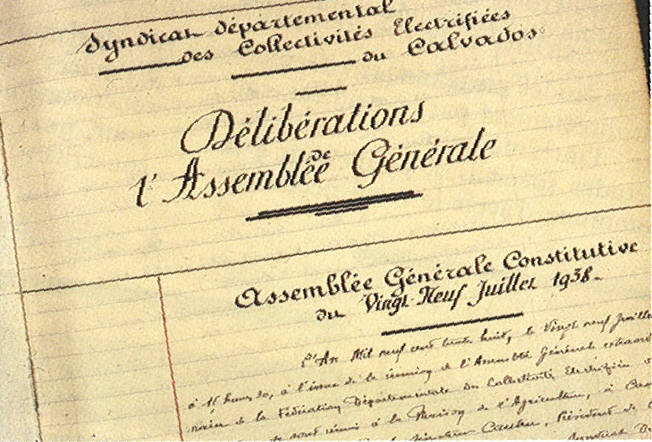 Syndicat départemental
des Collectivités Electrifiées
du Calvados
Délibérations
de
l'Assemblée Générale
Assemblée Générale Constitutive
du Vingt-Neuf Juillet 1938.
L'An Mil neuf cent trente huit, le Vingt neuf Juillet
à 16 heures 30, à l'issue de la réunion de l'Assemblée Générale
de la Fédération Départementale des Collectivités Electrifiées
sont réunis à la Maison de l'Agriculture, à
Président de